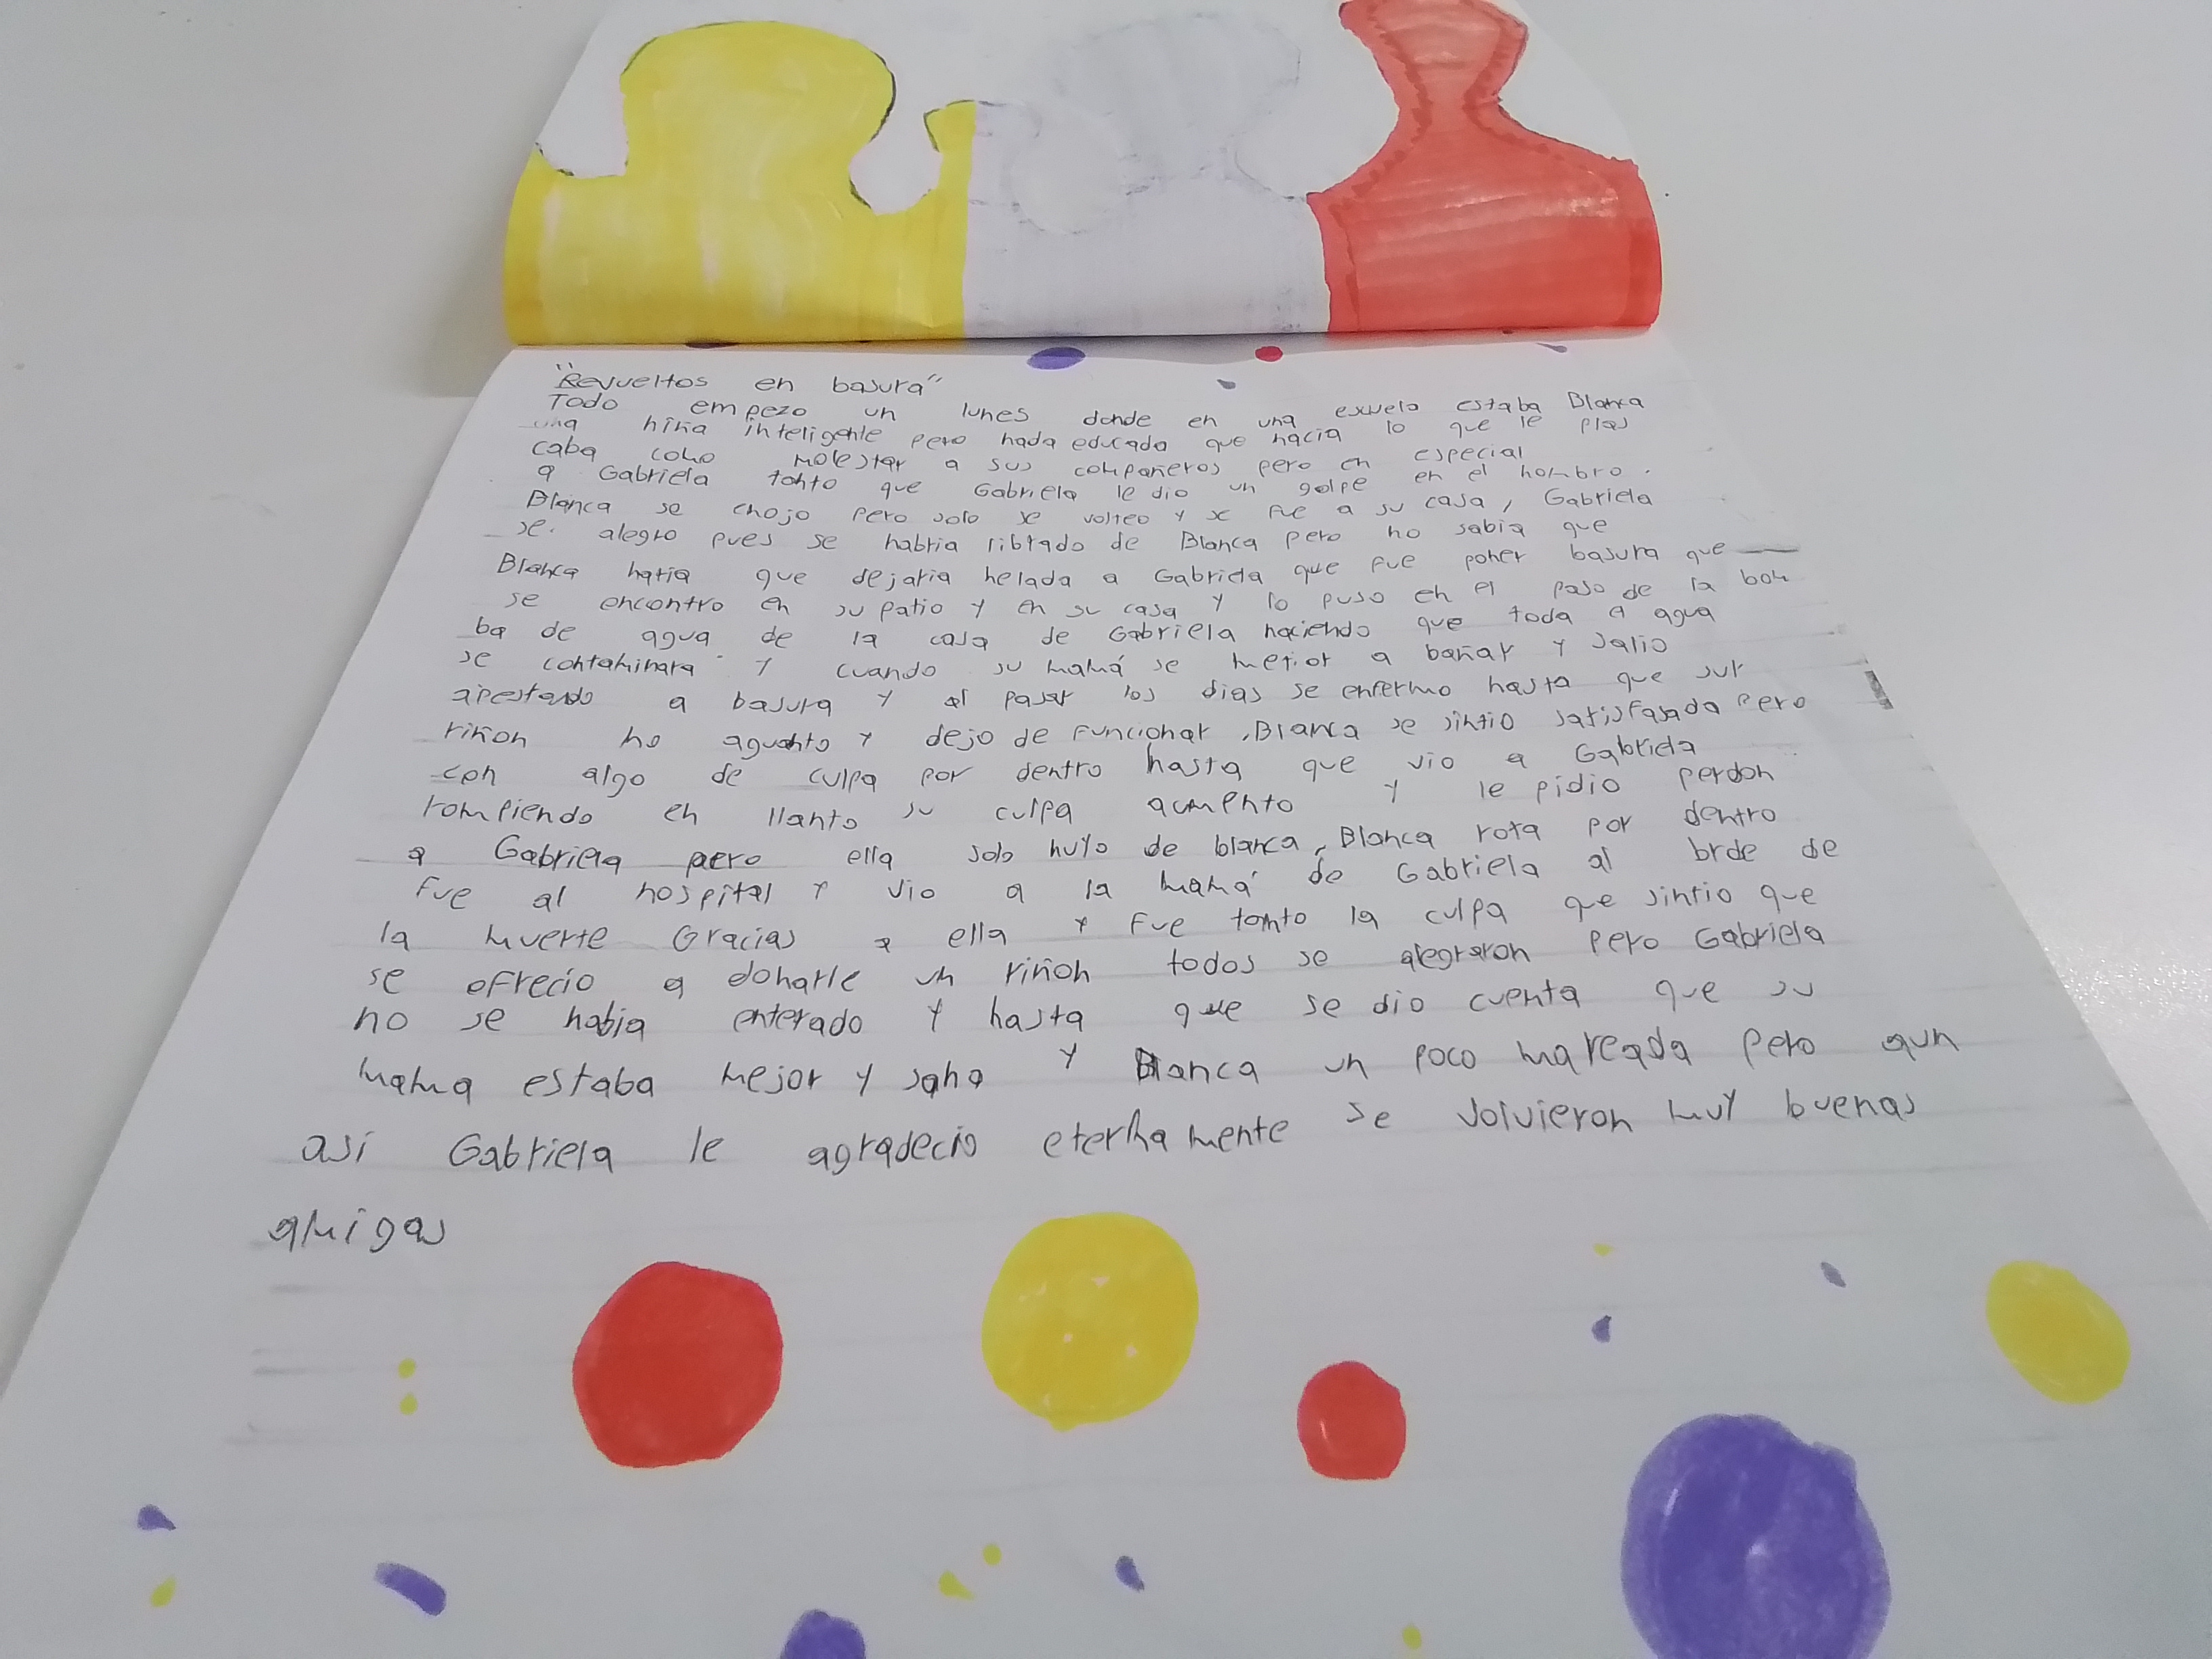 "Revueltos en basura"
Todo empezo un lunes donde en una escuela estaba Blanca
una niña inteligente pero nada educada que hacia lo que le plas
caba como molestar a sus compañeros pero en especial
a Gabriela tanto que Gabriela le dio un golpe en el hombro.
Blanca se enojo pero solo se volteo y se fue a su casa, Gabriela
se alegro pues se habria librado de Blanca pero no sabia que
Blanca haria que dejaria helada a Gabriela que fue poner basura que
se encontro en su patio y en su casa y lo puso en el paso de la bom
ba de agua de la casa de Gabriela haciendo que toda el agua
se contaminara y cuando su mamá se a bañar y salio
apestando a basura y al pasar los dias se enfermo hasta que sur
riñon no aguanto y dejo de funcionar, Blanca se sintio satisfasada pero
con algo de culpa por dentro hasta que vio a Gabriela
rompiendo en llanto su culpa aumento y le pidio perdon
a Gabriela pero ella solo huyo de blanca, Blanca rota por dentro
fue al hospital y vio a la mamá de Gabriela al brde de
la muerte Gracias a ella y fue tanto la culpa que sintio que
se ofrecio a donarle un riñon todos se alegraron pero Gabriela
no se habia enterado y hasta que se dio cuenta que su
mama estaba mejor y sana y Blanca un poco mareada pero aun
asi Gabriela le agradecio eternamente se volvieron muy buenas
amigas